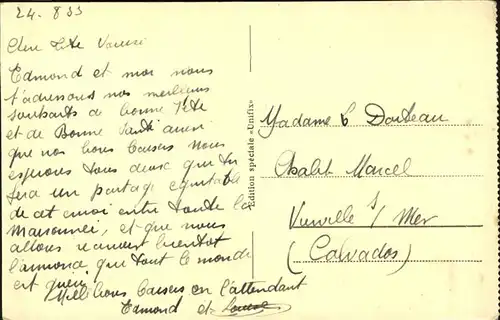 24-8 33
Chère Tité Louise
Edmond et moi nous
t'adressons nos meilleurs
souhaits de bonne fête
et de Bonne Santé ainsi
que nos bons baisers Nous
espérons tous deux que tu
fera un partage équitable
de cet envoi entre toute la
Maisonnée, et que nous
allons recevoir bientot
l'annonce que tout le monde
est guéri
Mille bons baisers en t'attendant
Edmond et Louise
Edition spéciale «Unifix»
Madame Darbeau
Chalet Marcel
Vierville s/ Mer
(Calvados)